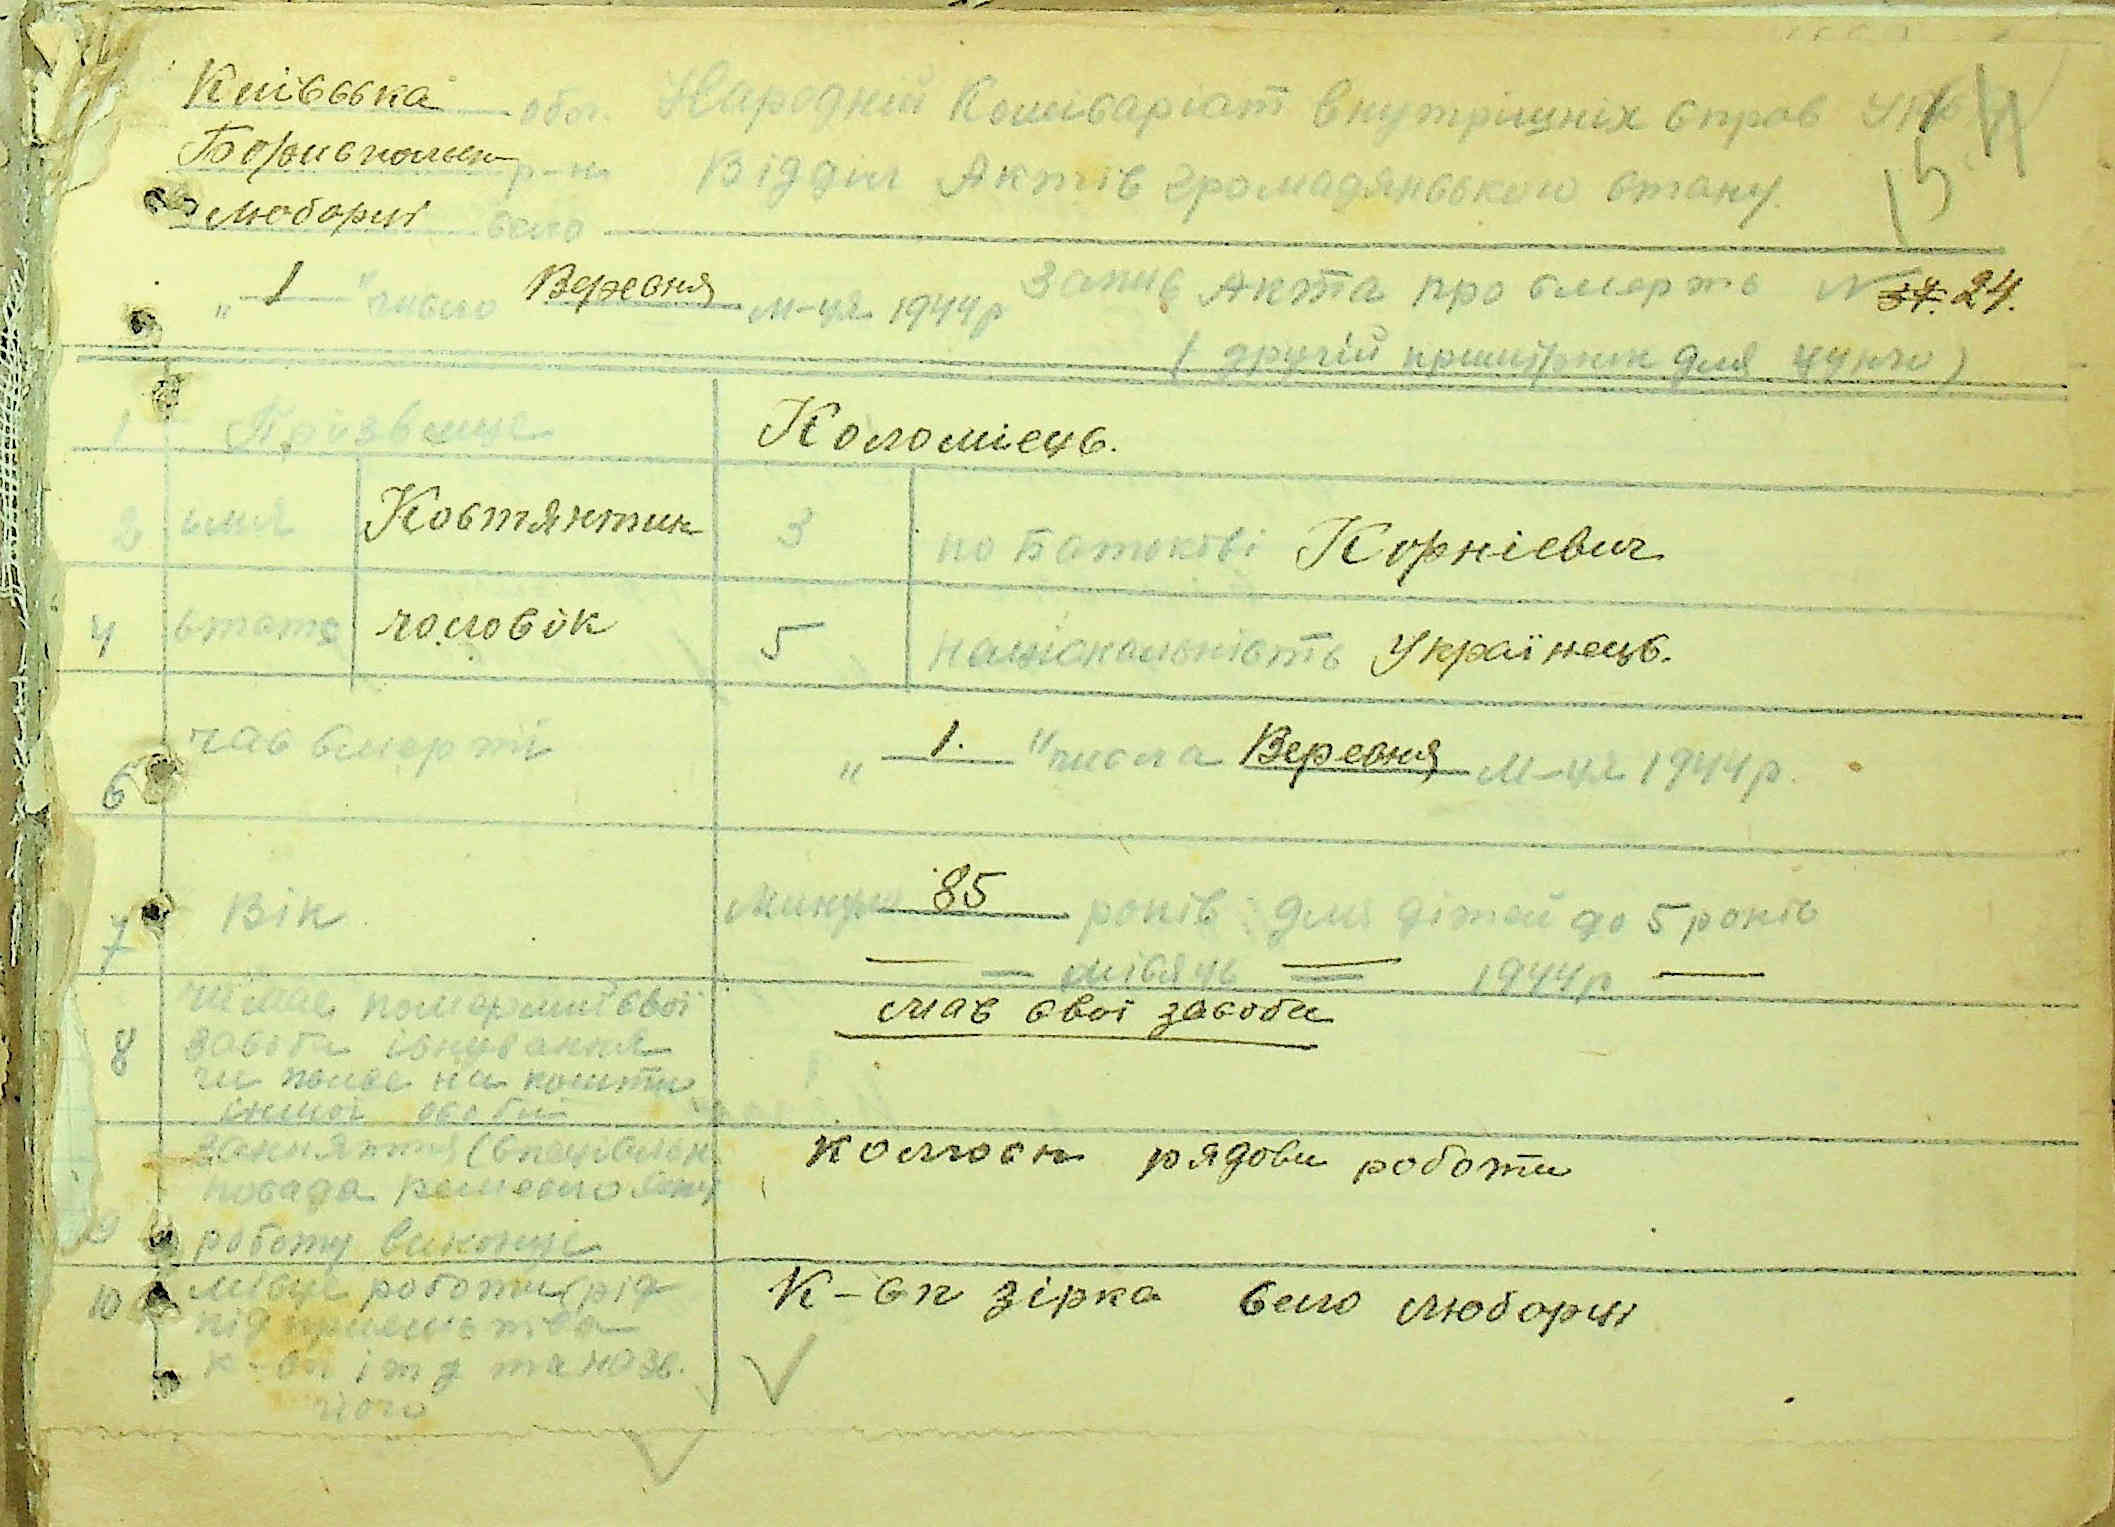 Київська обл. Народний Комісаріат Внутрішніх справ УРСР
Бориспольск р-н Відділ Актів громадянського стану.
Люборці село
„ 1 " число Вересня м-ця 1944 р Запис Акта про смерть № 24.
( другий примірник для цунго )
1 Прізвище Коломієць.
2 імя Костянтин 3 по Батькові Корнієвич
4 стать чоловік 5 національність Українець.
6 час смерті „ 1. " числа Вересня м-ця 1944 р.
7 Вік Минуло 85 років для дітей до 5 років
— місяць — 1944 р —
8 чи мав померший свої мав свої засоби
засоби існування
чи жив на кошти
іншої особи
9 заняття (спеціальн колгосп рядови роботи
посада ремесло яку
роботу виконує
10 місце роботи (рід К-сп зірка село Люборці
підприємства
к-сп і т д та назв.
його